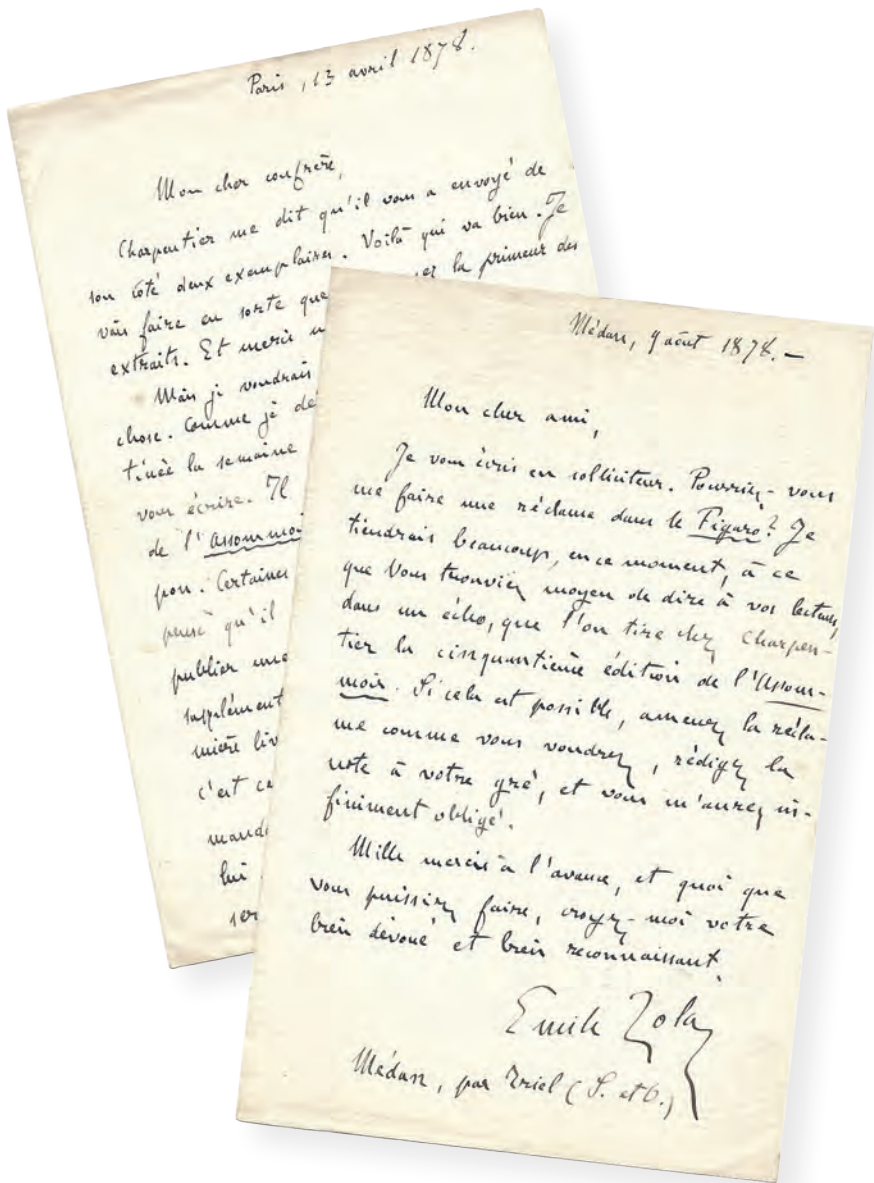 Paris, 13 avril 1878.
Mon cher confrère,
Charpentier me dit qu'il vous a envoyé de
son côté deux exemplaires. Voilà qui va bien. Je
vais faire en sorte que la primeur des
extraits. Et merci
Mais je voudrais
chose. Comme je
la semaine
vous écrire. Il
de l'Assommoi
pon. Certaines
pensé qu'il
publier une
supplément
mière liv
c'est ca
mand
lui
ser
Médan, 9 août 1878. —
Mon cher ami,
Je vous écris en solliciteur. Pourriez-vous
me faire une réclame dans le Figaro? Je
tiendrais beaucoup, en ce moment, à ce
que vous trouviez moyen de dire à vos lecteurs,
dans un écho, que l'on tire chez Charpen-
tier la cinquantième édition de l'Assom-
moir. Si cela est possible, amenez la récla-
me comme vous voudrez, rédigez la
note à votre gré, et vous m'aurez in-
finiment obligé.
Mille mercis à l'avance, et quoi que
vous puissiez faire, croyez-moi votre
bien dévoué et bien reconnaissant.
Emile Zola
Médan, par Triel (S. et O.)